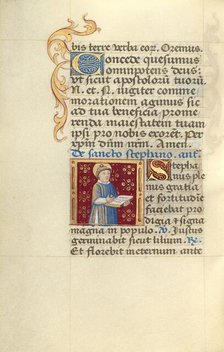 bis terre Verba eor. Oremus.
Concede quesumus
omnipotens deus:
Ut sicut apostolorũ tuorũ
N. et N. iugiter comme
morationem agimus sic
ad tua beneficia prome
renda maiestatem tuam
ipsi pro nobis exorẽt. Per
xpm̃ dñm nrm̃. Amen.
De sancto stephano. anṫ.
Stepha
nus ple
nus gratia
et fortitudĩe
faciebat pro
digia et signa
magna in populo. V. Iustus
germinabit sicut lilium. R.
Et florebit ineternum ante